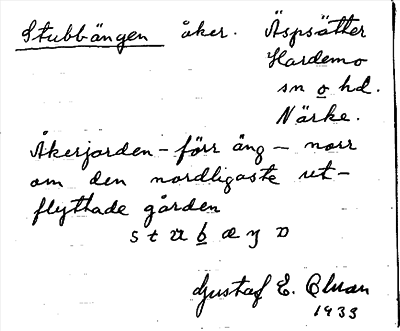 Stubbängen åker. Äspsätter
Hardemo
sn o hd.
Närke.
Åkerjorden - förr äng - norr
om den nordligaste ut-
flyttade gården
Gustaf E.
1933